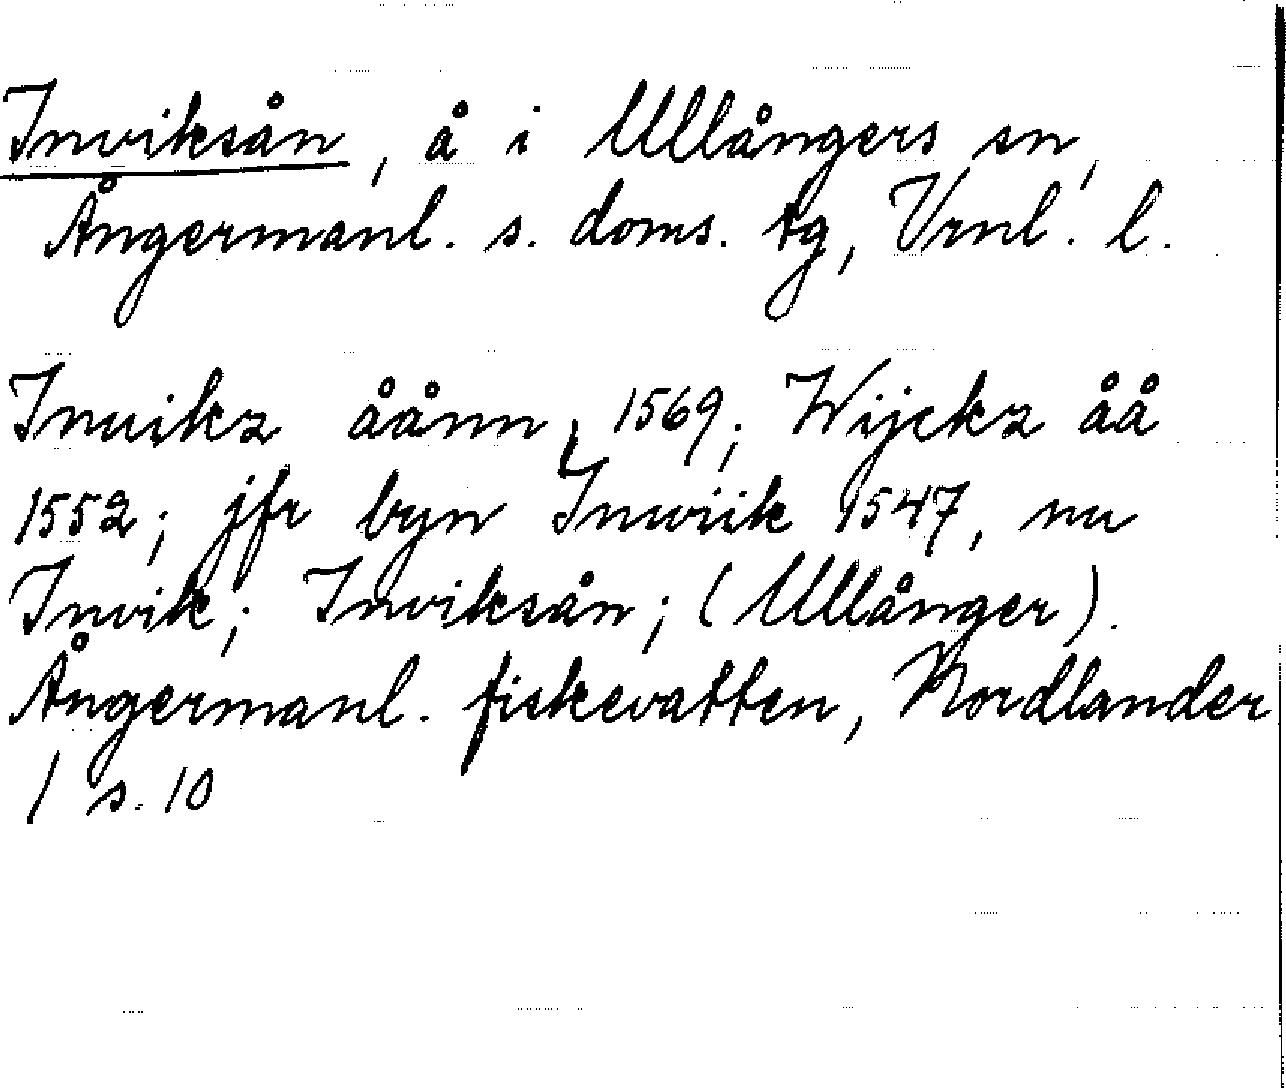 Inviksån, å i Ullångers sn,
Ångermanl. s. doms. tg, Vrnl. l.
Inuikz åånn, 1569; Wijckz åå
1552; jfr byn Inwiik 1547, nu
Invik; Inviksån; (Ullånger).
Ångermanl. fiskevatten, Nordlander
1 s. 10